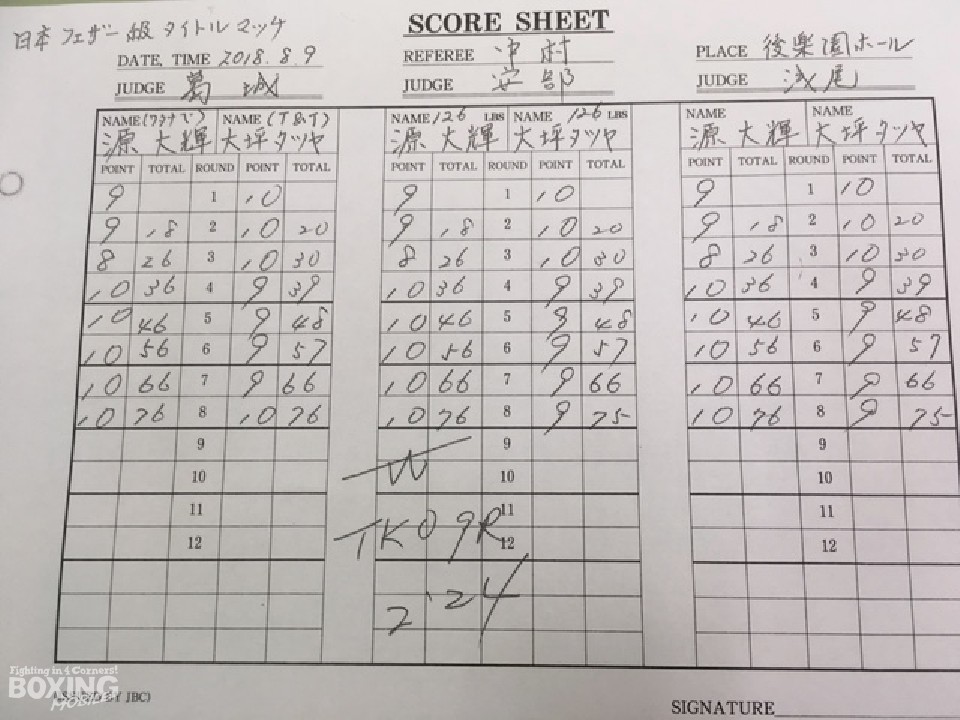 SCORE SHEET
日本フェザー級タイトルマッチ
DATE, TIME 2018.8.9 REFEREE 中村 PLACE 後楽園ホール
JUDGE 葛城 JUDGE 安部 JUDGE 浅尾
NAME (ワタナベ) NAME (T&T) NAME 126 LBS NAME 126 LBS NAME NAME
源 大輝 大坪タツヤ 源 大輝 大坪タツヤ 源 大輝 大坪タツヤ
POINT TOTAL ROUND POINT TOTAL POINT TOTAL ROUND POINT TOTAL POINT TOTAL ROUND POINT TOTAL
9 1 10 9 1 10 9 1 10
9 18 2 10 20 9 18 2 10 20 9 18 2 10 20
8 26 3 10 30 8 26 3 10 30 8 26 3 10 30
10 36 4 9 39 10 36 4 9 39 10 36 4 9 39
10 46 5 9 48 10 46 5 9 48 10 46 5 9 48
10 56 6 9 57 10 56 6 9 57 10 56 6 9 57
10 66 7 9 66 10 66 7 9 66 10 66 7 9 66
10 76 8 10 76 10 76 8 9 75 10 76 8 9 75
9 9 9
W
10 10 10
11 11 11
TKO 9R
12 12 12
2'24
Fighting in 4 Corners!
BOXING
MOBILE
BY JBC)
SIGNATURE